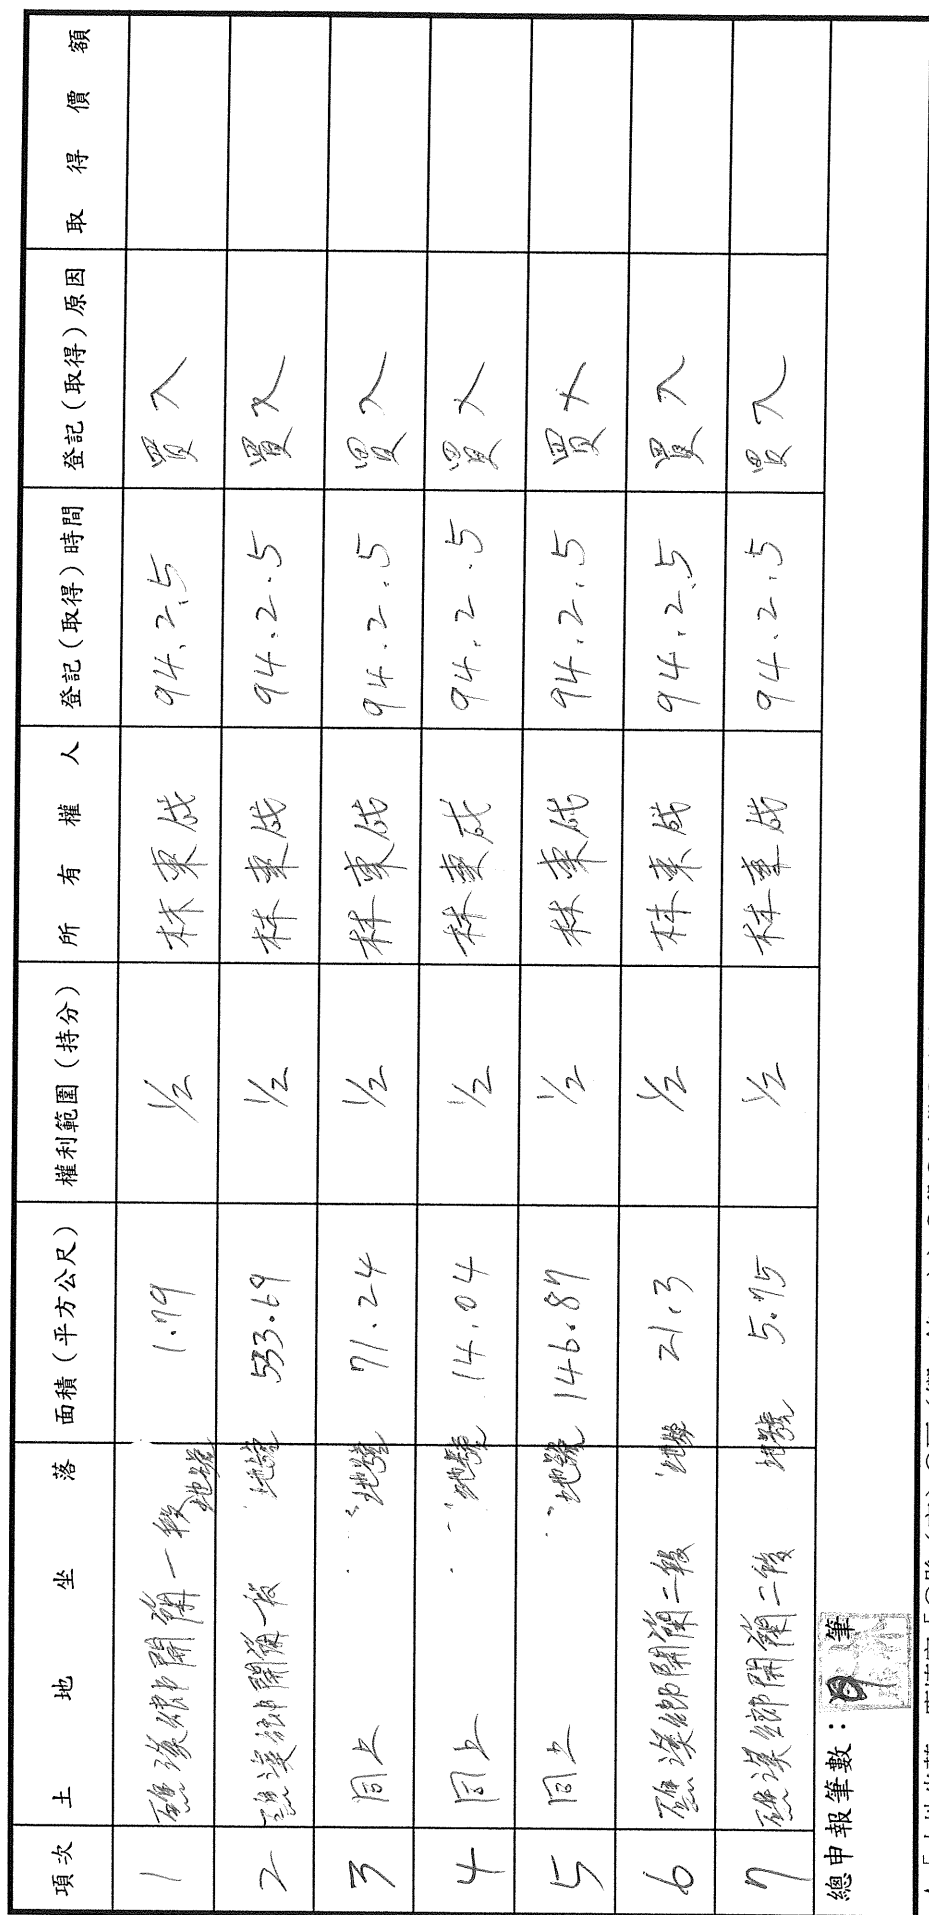 項次 土地坐落 面積(平方公尺) 權利範圍(持分) 所有權人 登記(取得)時間 登記(取得)原因 取得價額
1 礁溪鄉開蘭一段 地號 1.79 1/2 林棗成 94.2.5 買入
2 礁溪鄉開蘭一段 地號 533.69 1/2 林棗成 94.2.5 買入
3 同上 地號 71.24 1/2 林棗成 94.2.5 買入
4 同上 地號 14.04 1/2 林棗成 94.2.5 買入
5 同上 地號 146.87 1/2 林棗成 94.2.5 買入
6 礁溪鄉開蘭二段 地號 21.3 1/2 林棗成 94.2.5 買入
7 礁溪鄉開蘭二段 地號 5.75 1/2 林棗成 94.2.5 買入
總申報筆數: 筆